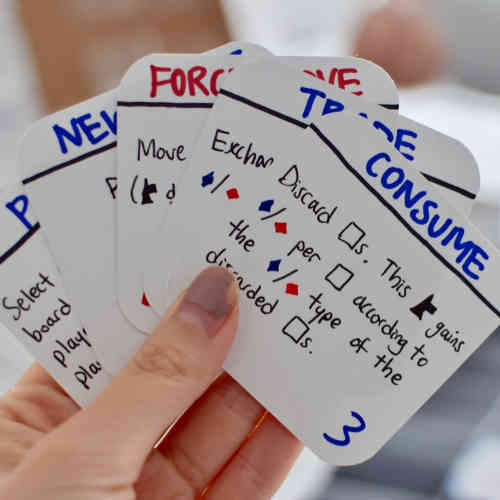 P
Select
board
play
pla
NEW
P
FORC OVE
Move
(
TRADE
Exchan
♦/♦
CONSUME
Discard □s. This ♟ gains
♦/♦ per □ according to
the ♦/♦ type of the
discarded □s.
3